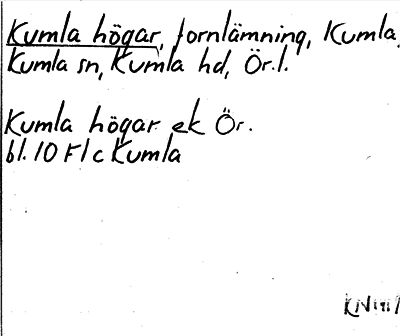 Kumla högar, fornlämning, Kumla,
Kumla sn, Kumla hd, Ör.l.
Kumla högar ek Ör.
bl. 10 F/c Kumla